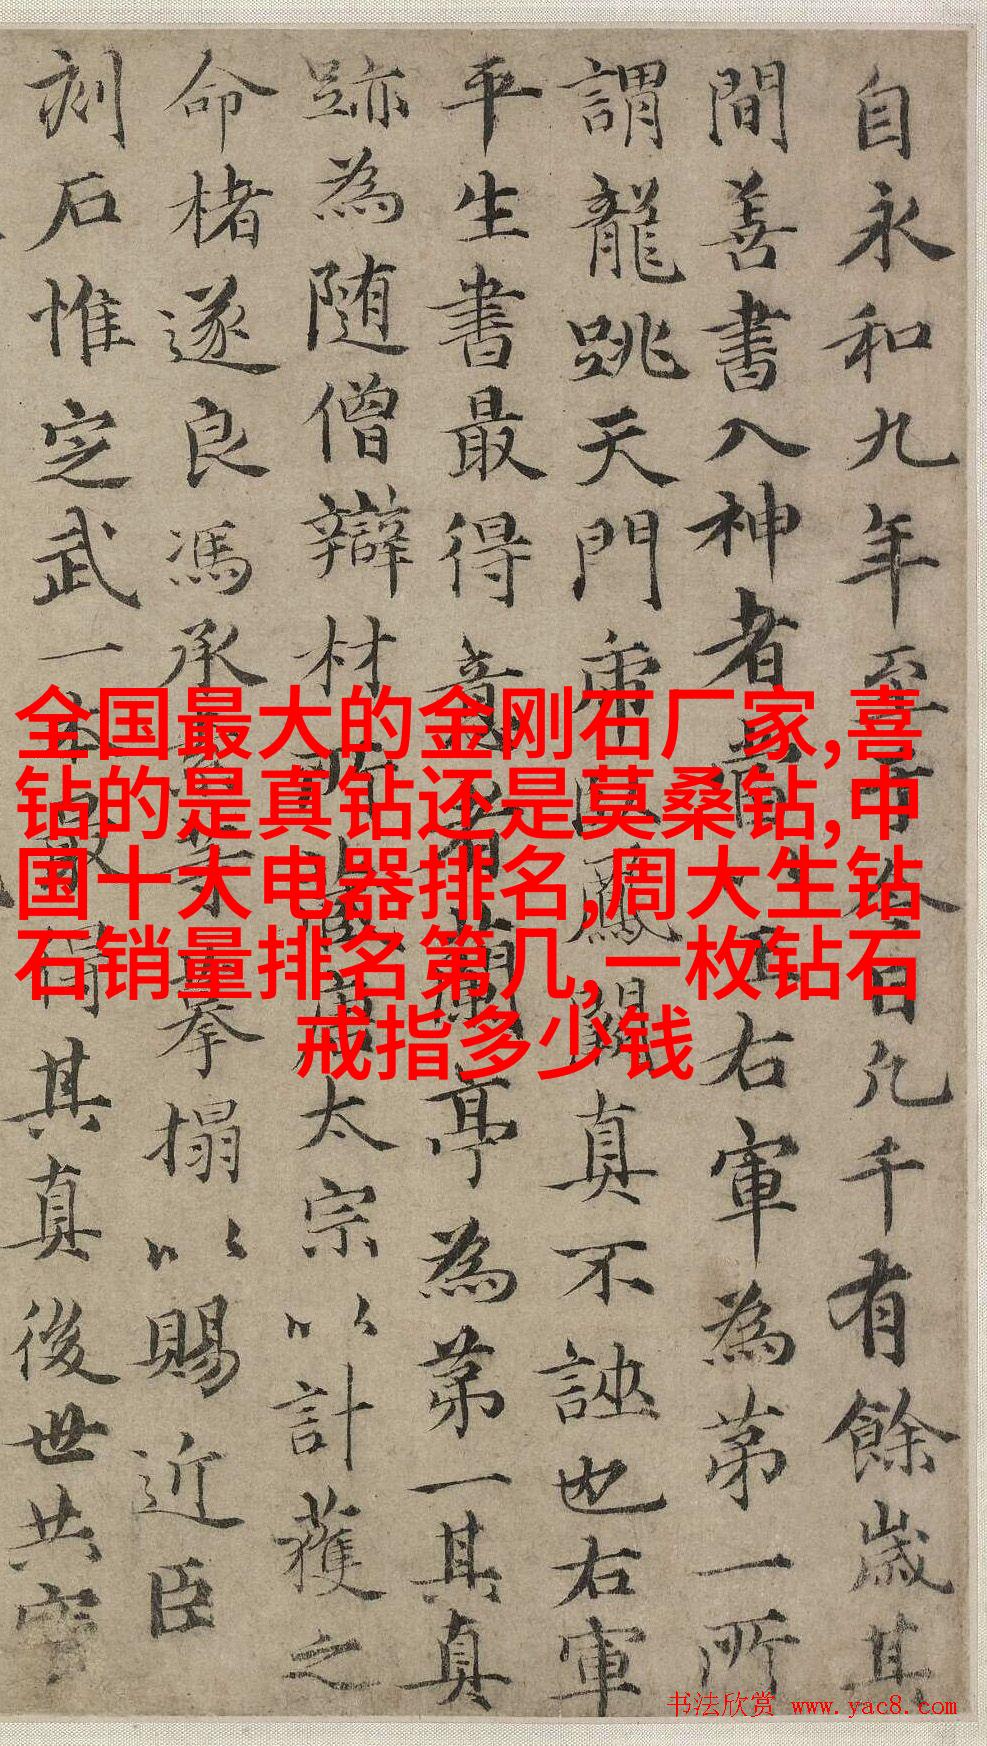 自永和九年至于今日凡千有餘歲其
間善書入神者當以王右軍為第一所
謂龍跳天門虎臥鳳閣真不誣也右軍
平生書最得意者蘭亭為第一其真
跡為随僧辯材所藏唐太宗以計獲之
命楮遂良馮承素等摹搨以賜近臣
刻石惟定武一本最得其真後世共寳
全国最大的金刚石厂家,喜
钻的是真钻还是莫桑钻,中
国十大电器排名,周大生钻
石销量排名第几,一枚钻石
戒指多少钱
书法欣赏 www.yac8.com